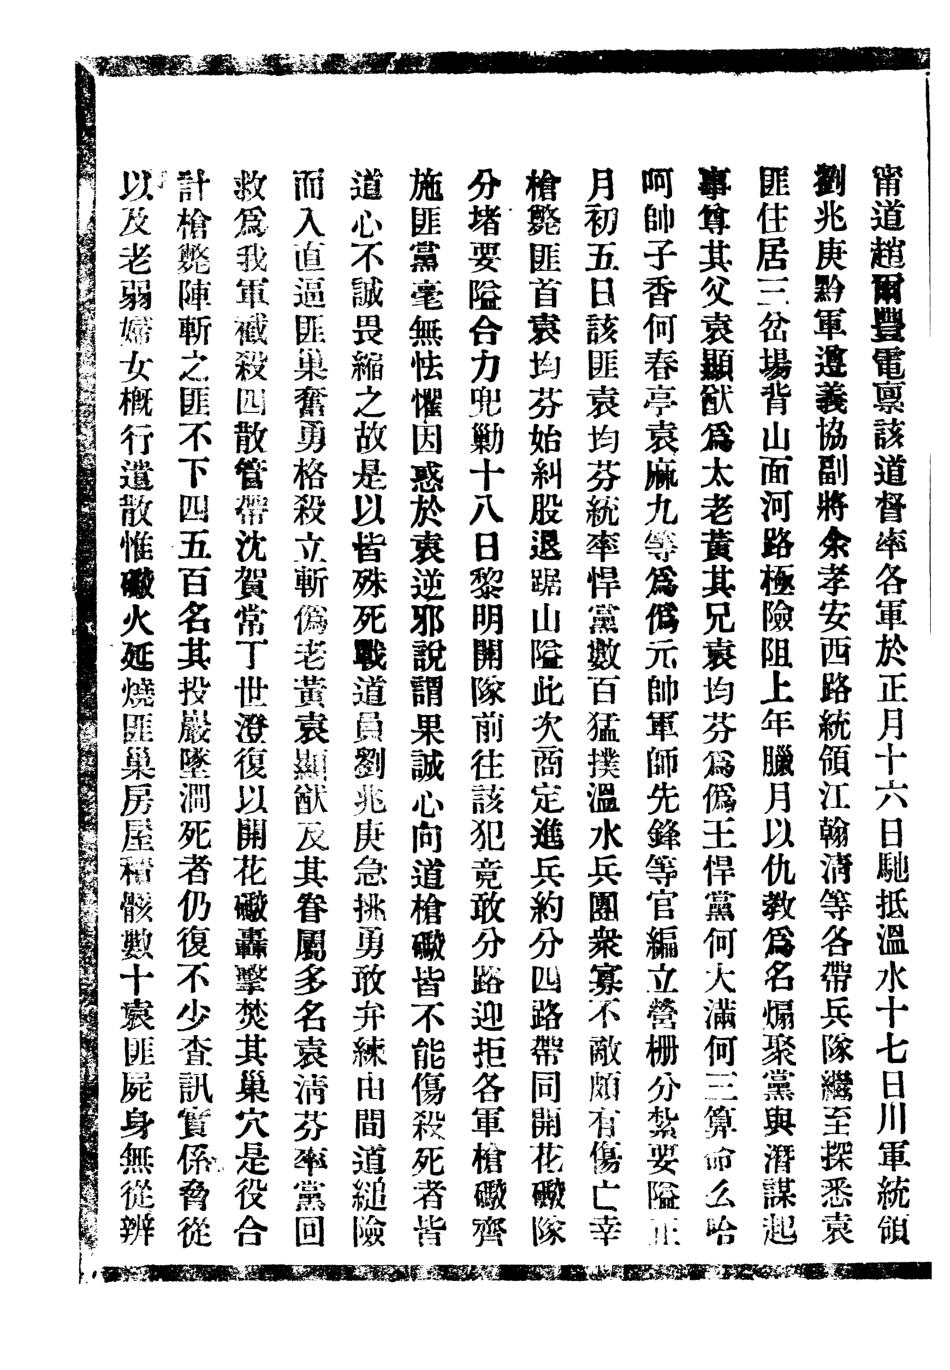 甯道趙爾豐電禀該道督率各軍於正月十六日馳抵溫水十七日川軍統領
劉兆庚黔軍遵義協副將余孝安西路統領江翰清等各帶兵隊繼至探悉袁
匪住居三岔場背山面河路極險阻上年臘月以仇教爲名煽聚黨與潛謀起
事尊其父袁顯猷爲太老黃其兄袁均芬爲僞王悍黨何大滿何三算命么哈
呵帥子香何春亭袁麻九等爲僞元帥軍師先鋒等官編立營柵分紮要隘正
月初五日該匪袁均芬統率悍黨數百猛撲溫水兵團衆寡不敵頗有傷亡幸
槍斃匪首袁均芬始糾股退踞山隘此次商定進兵約分四路帶同開花礮隊
分堵要隘合力兜勦十八日黎明開隊前往該犯竟敢分路迎拒各軍槍礮齊
施匪黨毫無怯懼因惑於袁逆邪說謂果誠心向道槍礮皆不能傷殺死者皆
道心不誠畏縮之故是以皆殊死戰道員劉兆庚急挑勇敢弁練由間道縋險
而入直逼匪巢奮勇格殺立斬僞老黃袁顯猷及其眷屬多名袁清芬率黨回
救爲我軍截殺四散管帶沈賀常丁世澄復以開花礮轟擊焚其巢穴是役合
計槍斃陣斬之匪不下四五百名其投巖墜澗死者仍復不少查訊實係脅從
以及老弱婦女概行遣散惟礮火延燒匪巢房屋積骸數十袁匪屍身無從辨